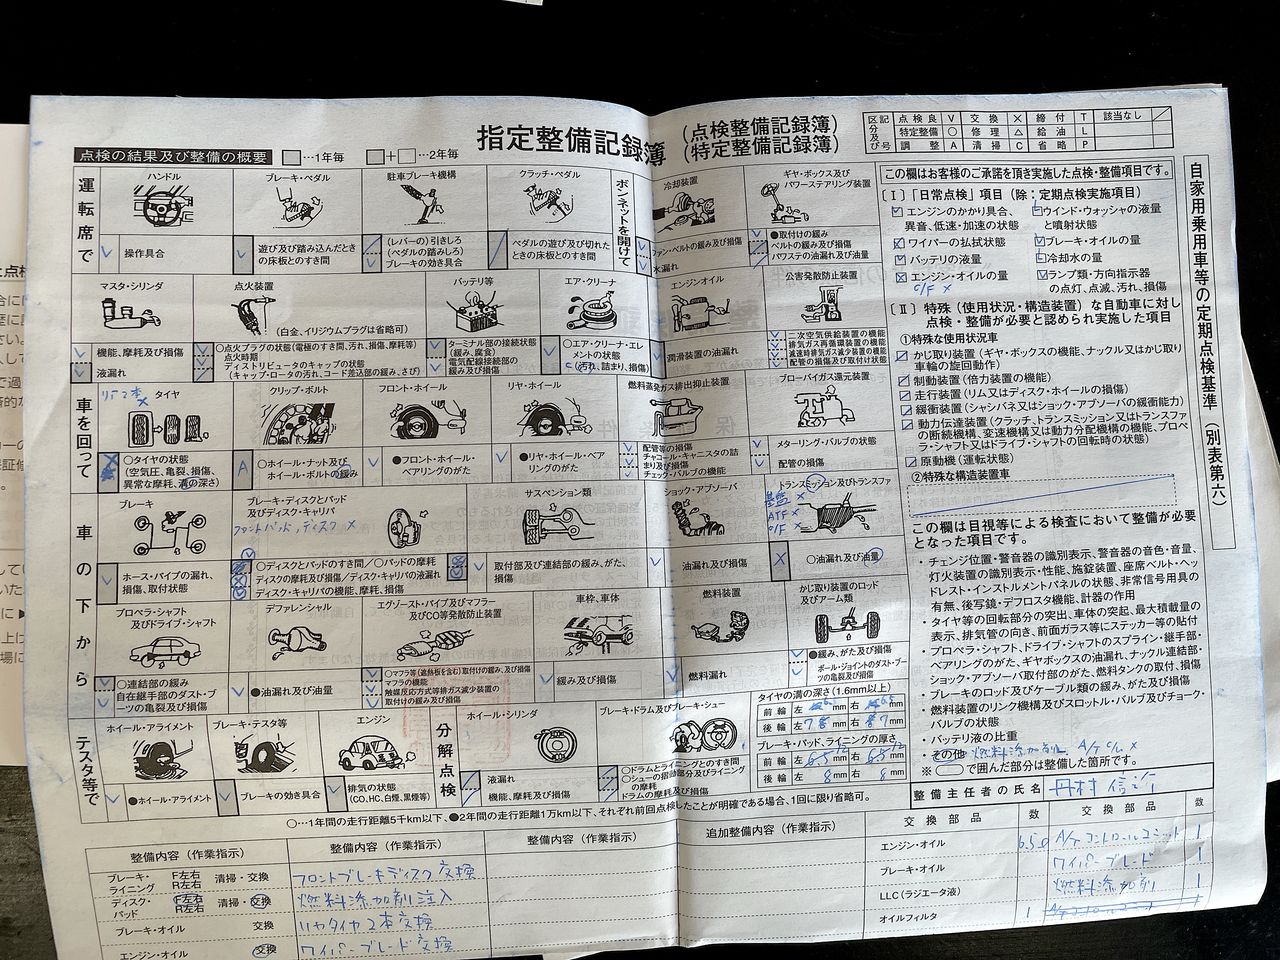 指定整備記録簿
(点検整備記録簿)
(特定整備記録簿)
区分及び記号
点検良 V 交換 × 締付 T 該当なし /
特定整備 ○ 修理 △ 給油 L
調整 A 清掃 C 省略 P
点検の結果及び整備の概要 □…1年毎 □+□…2年毎
運転席で
ハンドル
操作具合
ブレーキ・ペダル
遊び及び踏み込んだとき
の床板とのすき間
駐車ブレーキ機構
(レバーの)引きしろ
(ペダルの踏みしろ)
ブレーキの効き具合
クラッチ・ペダル
ペダルの遊び及び切れた
ときの床板とのすき間
ボンネットを開けて
冷却装置
ファン・ベルトの緩み及び損傷
水漏れ
ギヤ・ボックス及び
パワーステアリング装置
●取付けの緩み
ベルトの緩み及び損傷
パワステの油漏れ及び油量
マスタ・シリンダ
機能、摩耗及び損傷
液漏れ
点火装置
(白金、イリジウムプラグは省略可)
○点火プラグの状態(電極のすき間、汚れ、損傷、摩耗等)
点火時期
ディストリビュータのキャップの状態
(キャップ・ロータの汚れ、コード差込部の緩み、さび)
バッテリ等
ターミナル部の接続状態
(緩み、腐食)
電気配線接続部の
緩み及び損傷
エア・クリーナ
○エア・クリーナ・エレ
メントの状態
(汚れ、詰まり、損傷)
エンジン・オイル
潤滑装置の油漏れ
公害発散防止装置
二次空気供給装置の機能
排気ガス再循環装置の機能
減速時排気ガス減少装置の機能
配管の損傷及び取付状態
車を回って
タイヤ
○タイヤの状態
(空気圧、亀裂、損傷、
異常な摩耗、溝の深さ)
クリップ・ボルト
○ホイール・ナット及び
ホイール・ボルトの緩み
フロント・ホイール
●フロント・ホイール・
ベアリングのがた
リヤ・ホイール
●リヤ・ホイール・ベア
リングのがた
燃料蒸発ガス排出抑止装置
配管等の損傷
チャコール・キャニスタの詰
まり及び損傷
チェック・バルブの機能
ブローバイガス還元装置
メターリング・バルブの状態
配管の損傷
車の下から
ブレーキ
ホース・パイプの漏れ、
損傷、取付状態
ブレーキ・ディスクとパッド
及びディスク・キャリパ
フロントパッド、ディスク ×
○ディスクとパッドのすき間/○パッドの摩耗
ディスクの摩耗及び損傷/ディスク・キャリパの液漏れ
ディスク・キャリパの機能、摩耗、損傷
サスペンション類
取付部及び連結部の緩み、がた、
損傷
ショック・アブソーバ
油漏れ及び損傷
トランスミッション及びトランスファ
ATF ×
○油漏れ及び油量
プロペラ・シャフト
及びドライブ・シャフト
○連結部の緩み
自在継手部のダスト・ブ
ーツの亀裂及び損傷
デファレンシャル
●油漏れ及び油量
エグゾースト・パイプ及びマフラー
及びCO等発散防止装置
○マフラ等(遮熱板を含む)取付けの緩み、及び損傷
マフラの機能
触媒反応方式等排ガス減少装置の
取付けの緩み及び損傷
車枠、車体
緩み及び損傷
燃料装置
燃料漏れ
かじ取り装置のロッド
及びアーム類
●緩み、がた及び損傷
ボール・ジョイントのダスト・ブ
ーツの亀裂及び損傷
テスタ等で
ホイール・アライメント
●ホイール・アライメント
ブレーキ・テスタ等
ブレーキの効き具合
エンジン
排気の状態
(CO、HC、白煙、黒煙等)
分解点検
ホイール・シリンダ
液漏れ
機能、摩耗及び損傷
ブレーキ・ドラム及びブレーキ・シュー
○ドラムとライニングとのすき間
○シューの摺動部分及びライニング
の摩耗
ドラムの摩耗及び損傷
タイヤの溝の深さ(1.6mm以上)
前輪 左 mm 右 mm
後輪 左 mm 右 mm
ブレーキ・パッド、ライニングの厚さ
前輪 左 mm 右 mm
後輪 左 8 mm 右 8 mm
○…1年間の走行距離5千km以下、●2年間の走行距離1万km以下、それぞれ前回点検したことが明確である場合、1回に限り省略可。
この欄はお客様のご承諾を頂き実施した点検・整備項目です。
〔Ⅰ〕「日常点検」項目(除:定期点検実施項目)
エンジンのかかり具合、
異音、低速・加速の状態
ウインド・ウォッシャの液量
と噴射状態
ワイパーの払拭状態
ブレーキ・オイルの量
バッテリの液量
冷却水の量
エンジン・オイルの量
ランプ類・方向指示器
の点灯、点滅、汚れ、損傷
〔Ⅱ〕特殊(使用状況・構造装置)な自動車に対し
点検・整備が必要と認められ実施した項目
①特殊な使用状況
かじ取り装置(ギヤ・ボックスの機能、ナックル又はかじ取り
車輪の旋回動作)
制動装置(倍力装置の機能)
走行装置(リム又はディスク・ホイールの損傷)
緩衝装置(シャシバネ又はショック・アブソーバの緩衝能力)
動力伝達装置(クラッチ、トランスミッション又はトランスファ
の断続機構、変速機構又は動力分配機構の機能、プロペ
ラ・シャフト又はドライブ・シャフトの回転時の状態)
原動機(運転状態)
②特殊な構造装置車
この欄は目視等による検査において整備が必要
となった項目です。
・チェンジ位置・警音器の識別表示、警音器の音色・音量、
灯火装置の識別表示・性能、施錠装置、座席ベルト・ヘッ
ドレスト・インストルメントパネルの状態、非常信号用具の
有無、後写鏡・デフロスタ機能、計器の作用
・タイヤ等の回転部分の突出、車体の突起、最大積載量の
表示、排気管の向き、前面ガラス等にステッカー等の貼付
・プロペラ・シャフト、ドライブ・シャフトのスプライン・継手部・
ベアリングのがた、ギヤボックスの油漏れ、ナックル連結部・
ショック・アブソーバ取付部のがた、燃料タンクの取付、損傷
・ブレーキのロッド及びケーブル類の緩み、がた及び損傷
・燃料装置のリンク機構及びスロットル・バルブ及びチョーク・
バルブの状態
・バッテリ液の比重
・その他 燃料添加剤
※ で囲んだ部分は整備した箇所です。
整備主任者の氏名
自家用乗用車等の定期点検基準(別表第六)
整備内容(作業指示) 整備内容(作業指示) 整備内容(作業指示) 追加整備内容(作業指示) 交換部品 数 交換部品 数
ブレーキ・ライニング F左右 R左右 清掃・交換 フロントブレーキディスク交換
ディスク・パッド F左右 R左右 清掃・交換 燃料添加剤注入
ブレーキ・オイル 交換 リヤタイヤ2本交換
エンジン・オイル 交換 ワイパーブレード交換
エンジン・オイル 6.5 A/Tコントロールユニット 1
ブレーキ・オイル ワイパーブレード 1
LLC(ラジエータ液) 燃料添加剤 1
オイルフィルタ 1